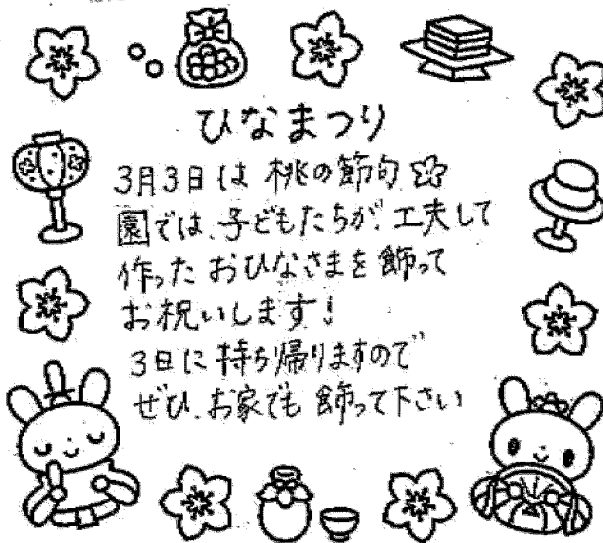 ひなまつり
3月3日は 桃の節句
園では、子どもたちが、工夫して
作った おひなさまを 飾って
お祝いします!
3日に 持ち帰りますので
ぜひ、お家でも 飾って下さい